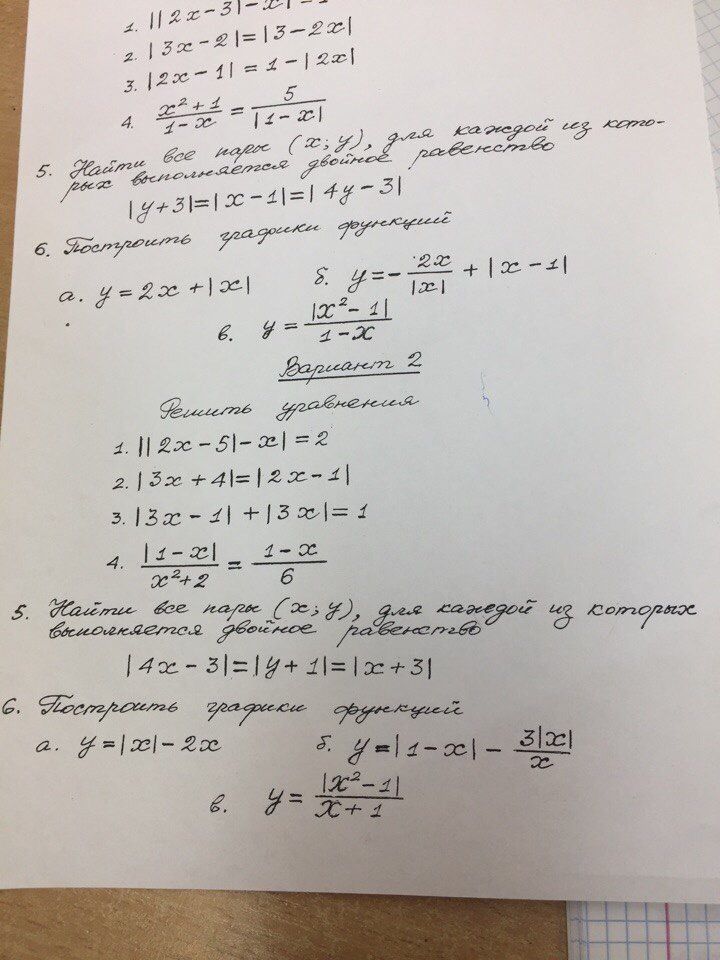 1. ||2x-3|-x|=
2. |3x-2|=|3-2x|
3. |2x-1| = 1-|2x|
4. \frac{x²+1}{1-x} = \frac{5}{|1-x|}
5. Найти все пары (x; y), для каждой из кото-
рых выполняется двойное равенство
|y+3|=|x-1|=|4y-3|
6. Построить графики функций
а. y=2x+|x| б. y=-\frac{2x}{|x|} + |x-1|
в. y=\frac{|x²-1|}{1-x}
Вариант 2
Решить уравнения
1. ||2x-5|-x|=2
2. |3x+4|=|2x-1|
3. |3x-1|+|3x|=1
4. \frac{|1-x|}{x²+2} = \frac{1-x}{6}
5. Найти все пары (x; y), для каждой из которых
выполняется двойное равенство
|4x-3|=|y+1|=|x+3|
6. Построить графики функций
а. y=|x|-2x б. y=|1-x| - \frac{3|x|}{x}
в. y=\frac{|x²-1|}{x+1}